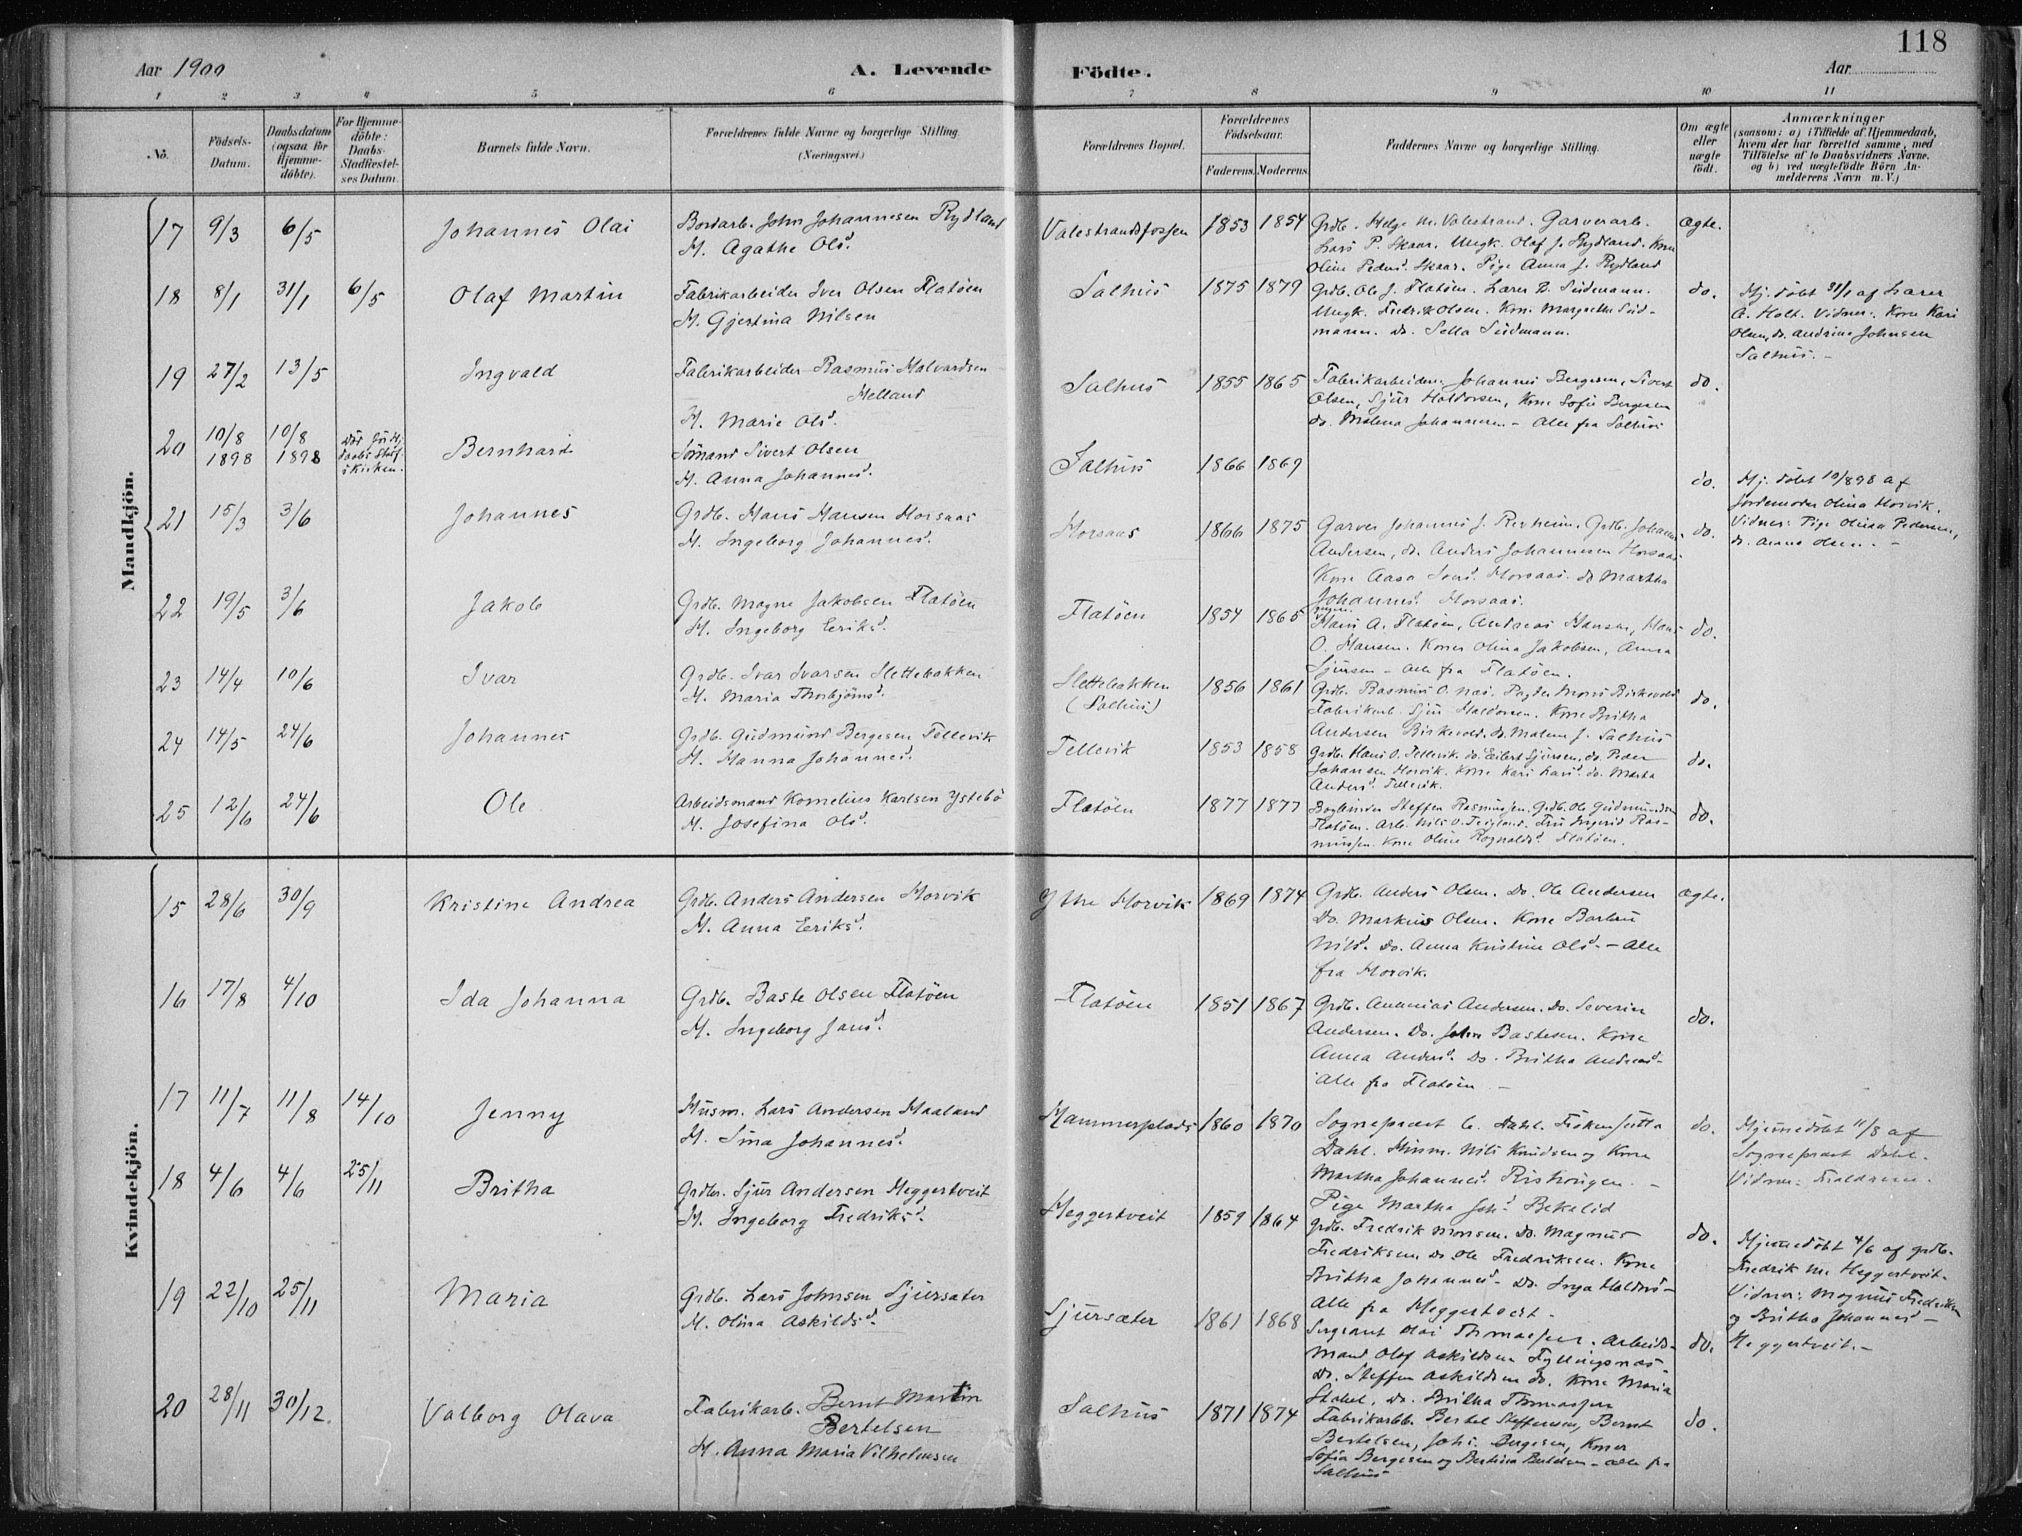 118
Aar 1900
A. Levende Födte.
Aar
1 2 3 4 5 6 7 8 9 10 11
No.
Födsels-Datum.
Daabsdatum (ogsaa for Hjemme-döbte).
For Hjemme-döbte: Daabs-Stadfæstel-ses Datum.
Barnets fulde Navn.
Forældrenes fulde Navne og borgerlige Stilling. (Næringsvei.)
Forældrenes Bopæl.
Forældrenes Födselsaar.
Faderens. Moderens.
Faddernes Navne og borgerlige Stilling.
Om ægte eller uægte födt.
Anmærkninger
(saasom: a) i Tilfælde af Hjemmedaab, hvem der har forrettet samme, med Tilföielse af to Daabsvidners Navne, og b) ved uægtefödte Börn An-melderens Navn m. V.)
Mandkjön.
17 9/3 6/5 Johannes Olai
Bordarb. John Johannesen Rydland
H. Agathe Olsd.
Valestrandsfossen 1853 1854
Grdb. Helge M. Valestrand. Garverarb.
Lars P. Skaar. Ungk. Olaf J. Rydland. Kone
Oline Pedersd. Skaar. Pige Anna J. Rydland
ægte.
18 8/1 31/1 6/5 Olaf Martin
Fabrikarbeider Iver Olsen Flatöen
H. Gjertina Nilsen
Salhus 1875 1879
Grdb. Ole J. Flatöen. Lærer B. Sudmann.
Ungk. Fredrik Olsen. Kone Margrethe Sud-
mann. do. Sella Sudmann.
do.
Hj. döbt 31/1 af Lærer
A. Holt. Vidner: Kone Kari
Olsen, do. Andrine Johnsen
Salhus. -
19 27/2 13/5 Ingvald
Fabrikarbeider Rasmus Halvardsen
Helland
H. Marie Olsd.
Salhus 1855 1865
Fabrikarbeidere Johannes Bergesen, Sivert
Olsen, Sjur Haldorsen, Kone Sofie Bergesen
do. Malena Johannesen - Alle fra Salhus
do.
20 10/8 1898 10/8 1898
Död för Hj.
daabs Stadf.
i Kirken.
Bernhard
Sömand Sivert Olsen
H. Anna Johannesd.
Salhus 1866 1869
do.
Hj. döbt 10/8 98 af
Jordemoder Olina Horvik.
Vidner: Pige Olina Pedersen,
do. Anna Olsen. -
21 15/3 3/6 Johannes
Grdb. Hans Hansen Horsaas
H. Ingeborg Johannesd.
Horsaas 1866 1875
Garver Johannes J. Revheim. Grdb. Johannes
Andersen, do. Anders Johannesen Horsaas
Kone Aasa Iversd. Horsaas. do Martha
Johannesd. Horsaas.
do.
22 19/5 3/6 Jakob
Grdb. Magne Jakobsen Flatöen
H. Ingeborg Eriksd.
Flatöen 1854 1865
Hans A. Flatöen, Andreas Hansen, Hans
O. Hansen. Koner Olina Jakobsen, Anna
Sjursen - Alle fra Flatöen.
do.
23 14/4 10/6 Ivar
Grdb. Ivar Ivarsen Slettebakken
H. Maria Thorbjörnsd.
Slettebakken
(Salhus)
1856 1861
Grdb. Rasmus O. Næs. Pagter Mons Birkevold
Fabrikarb. Sjur Haldorsen. Kone Britha
Andersen Birkevold. do. Malene J. Salhus
do.
24 14/5 24/6 Johannes
Grdb. Gudmund Bergesen Tellevik
H. Hanna Johannesd.
Tellevik 1853 1858
Grdb. Hans O. Tellevik. do. Eilert Sjursen, do. Peder
Johansen Horvik. Kone Kari Larsd. do. Marta
Andersd. Tellevik.
do.
25 12/6 24/6 Ole
Arbeidsmand Kornelius Karlsen Ystebö
H. Josefina Olsd.
Flatöen 1877 1877
Bogbinder Steffen Rasmussen. Grdb. Ole Gudmundsen
Flatöen. Arb. Nils O. Teigland. Fru Ingerid Ras-
mussen. Kone Oline Rognaldsd. Flatöen.
do.
Kvindekjön.
15 28/6 30/9 Kristine Andrea
Grdb. Anders Andersen Horvik
H. Anna Eriksd.
Ytre Horvik 1869 1874
Grdb. Anders Olsen. Do. Ole Andersen
Do. Markus Olsen. Kone Barbru
Nilsd. Do. Anna Kristine Olsd. - Alle
fra Horvik.
ægte.
16 17/8 4/10 Ida Johanna
Grdb. Baste Olsen Flatöen
H. Ingeborg Jansd.
Flatöen 1851 1867
Grdb. Ananias Andersen. Do. Severin
Andersen. Do. John Bastesen. Kone
Anna Andersd. Do. Britha Andreasd. -
Alle fra Flatöen -
do.
17 11/7 11/8 14/10 Jenny
Husm. Lars Andersen Haaland
H. Sina Johannesd.
Hammersplads 1860 1870
Sogneprest C. Dahl. Fröken Jutta
Dahl. Husm. Nils Knudsen og Kone
Martha Johannesd. Ristöingen. -
Pige Martha Johsd. Bekalid
do.
Hjemmedöbt 11/8 af
Sogneprest Dahl.
Vidner: Forældrene.
18 4/6 4/6 25/11 Britha
Grdbr. Sjur Andersen Heggertveit
H. Ingeborg Fredriksd.
Heggertveit 1859 1864
Grdb. Fredrik Monsen. Do. Magnus
Fredriksen Do Ole Fredriksen. Kone
Britha Johannesd. Do. Inga Haldorsd. -
Alle fra Heggertveit -
do.
Hjemmedöbt 4/6 af grdb.
Fredrik M. Heggertveit.
Vidner: Magnus Fredriksen
og Britha Johannesd. -
Heggertveit. -
19 22/10 25/11 Maria
Grdb. Lars Johnsen Sjursæter
H. Olina Askildsd.
Sjursæter 1861 1868
Sergeant Olai Thomassen. Arbeids-
mand Olaf Askildsen Fyllingsnæs.
Do. Steffen Askildsen do. Kone Maria
Do. Britha Thomassen
do.
20 28/11 30/12. Valborg Olava
Fabrikarb. Bernt Martin
Bertelsen
H. Anna Maria Vilhelmsen
Salhus 1871 1874
Fabrikarbb. Bertel Steffensen, Bernt
Bertelsen, Johs. Bergesen, Koner
Sofia Bergesen og Bertina Bertelsen - alle fra
Salhus
do.